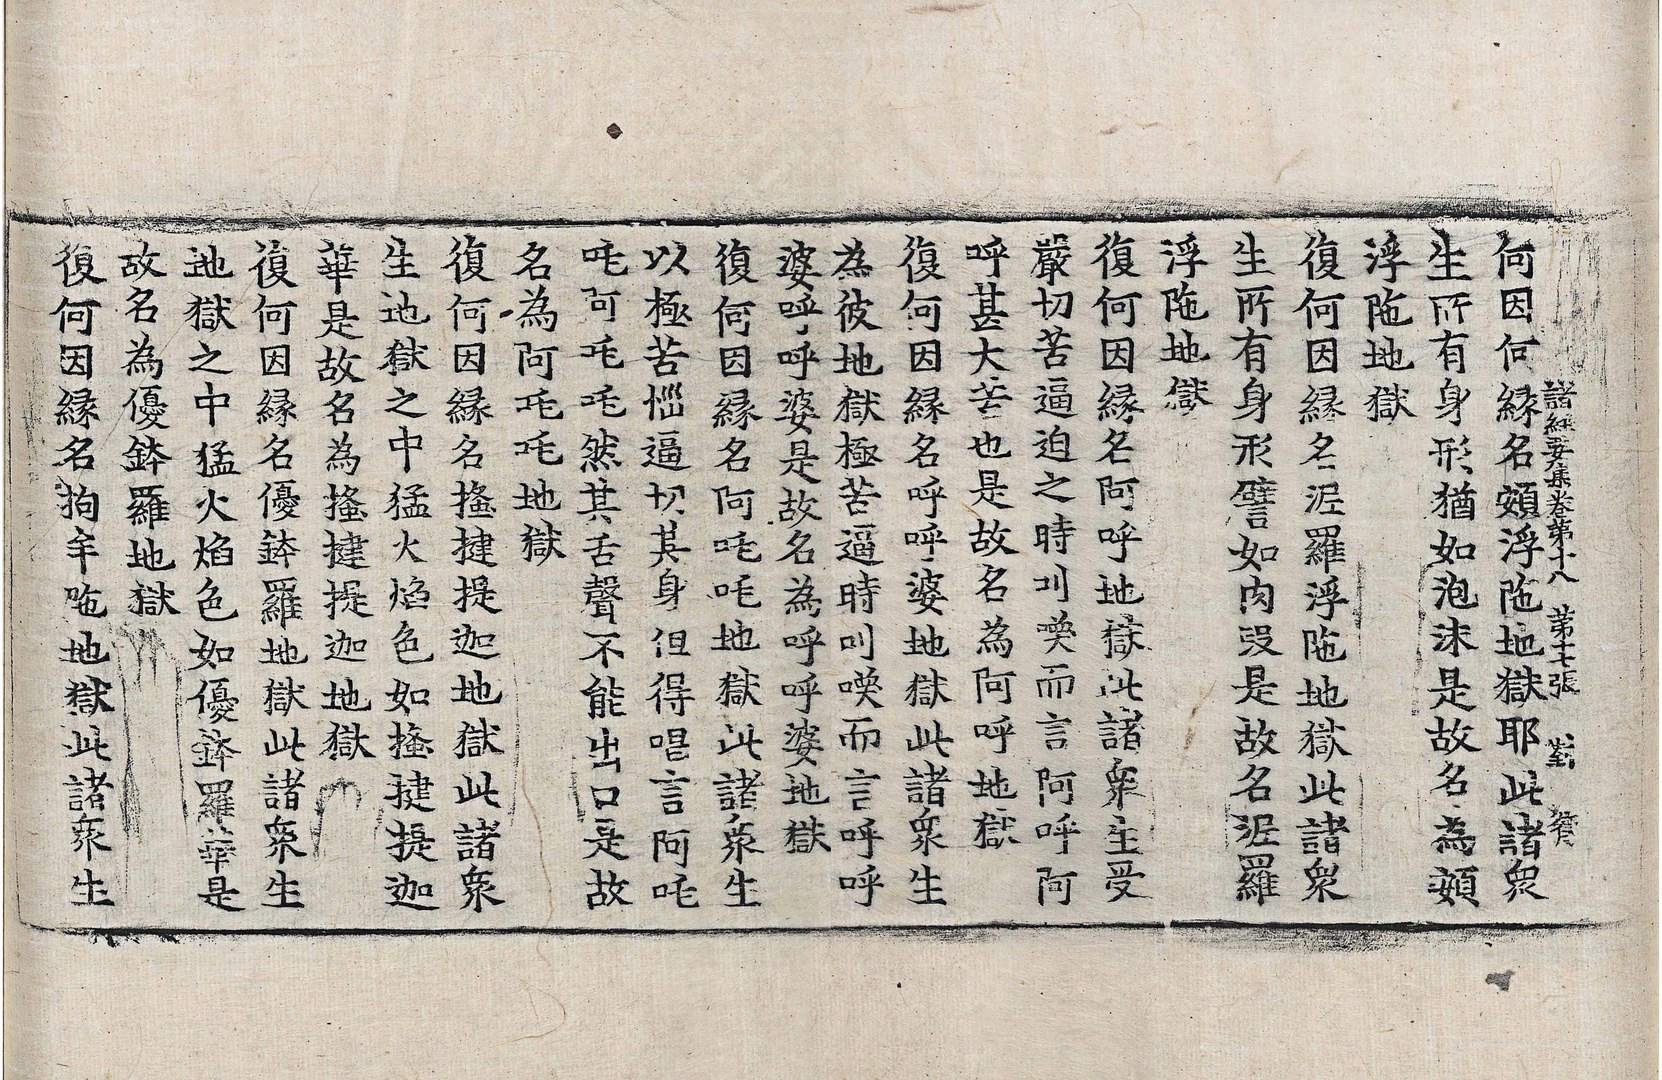 諸經要集卷第十八 第十七張 對
何因何縁名頞浮陁地獄耶此諸衆
生所有身形猶如泡沫是故名為頞
浮陁地獄
復何因縁名泥羅浮陁地獄此諸衆
生所有身形譬如肉段是故名泥羅
浮陁地獄
復何因縁名阿呼地獄此諸衆生受
嚴切苦逼迫之時叫喚而言阿呼阿
呼甚大苦也是故名為阿呼地獄
復何因縁名呼呼婆地獄此諸衆生
為彼地獄極苦逼時叫喚而言呼呼
婆呼呼婆是故名為呼呼婆地獄
復何因縁名阿吒吒地獄此諸衆生
以極苦惱逼切其身但得唱言阿吒
吒阿吒吒然其舌聲不能出口是故
名為阿吒吒地獄
復何因縁名搔揵提迦地獄此諸衆
生地獄之中猛火焰色如搔揵提迦
華是故名為搔揵提迦地獄
復何因縁名優鉢羅地獄此諸衆生
地獄之中猛火焰色如優鉢羅華是
故名為優鉢羅地獄
復何因縁名拘牟陁地獄此諸衆生